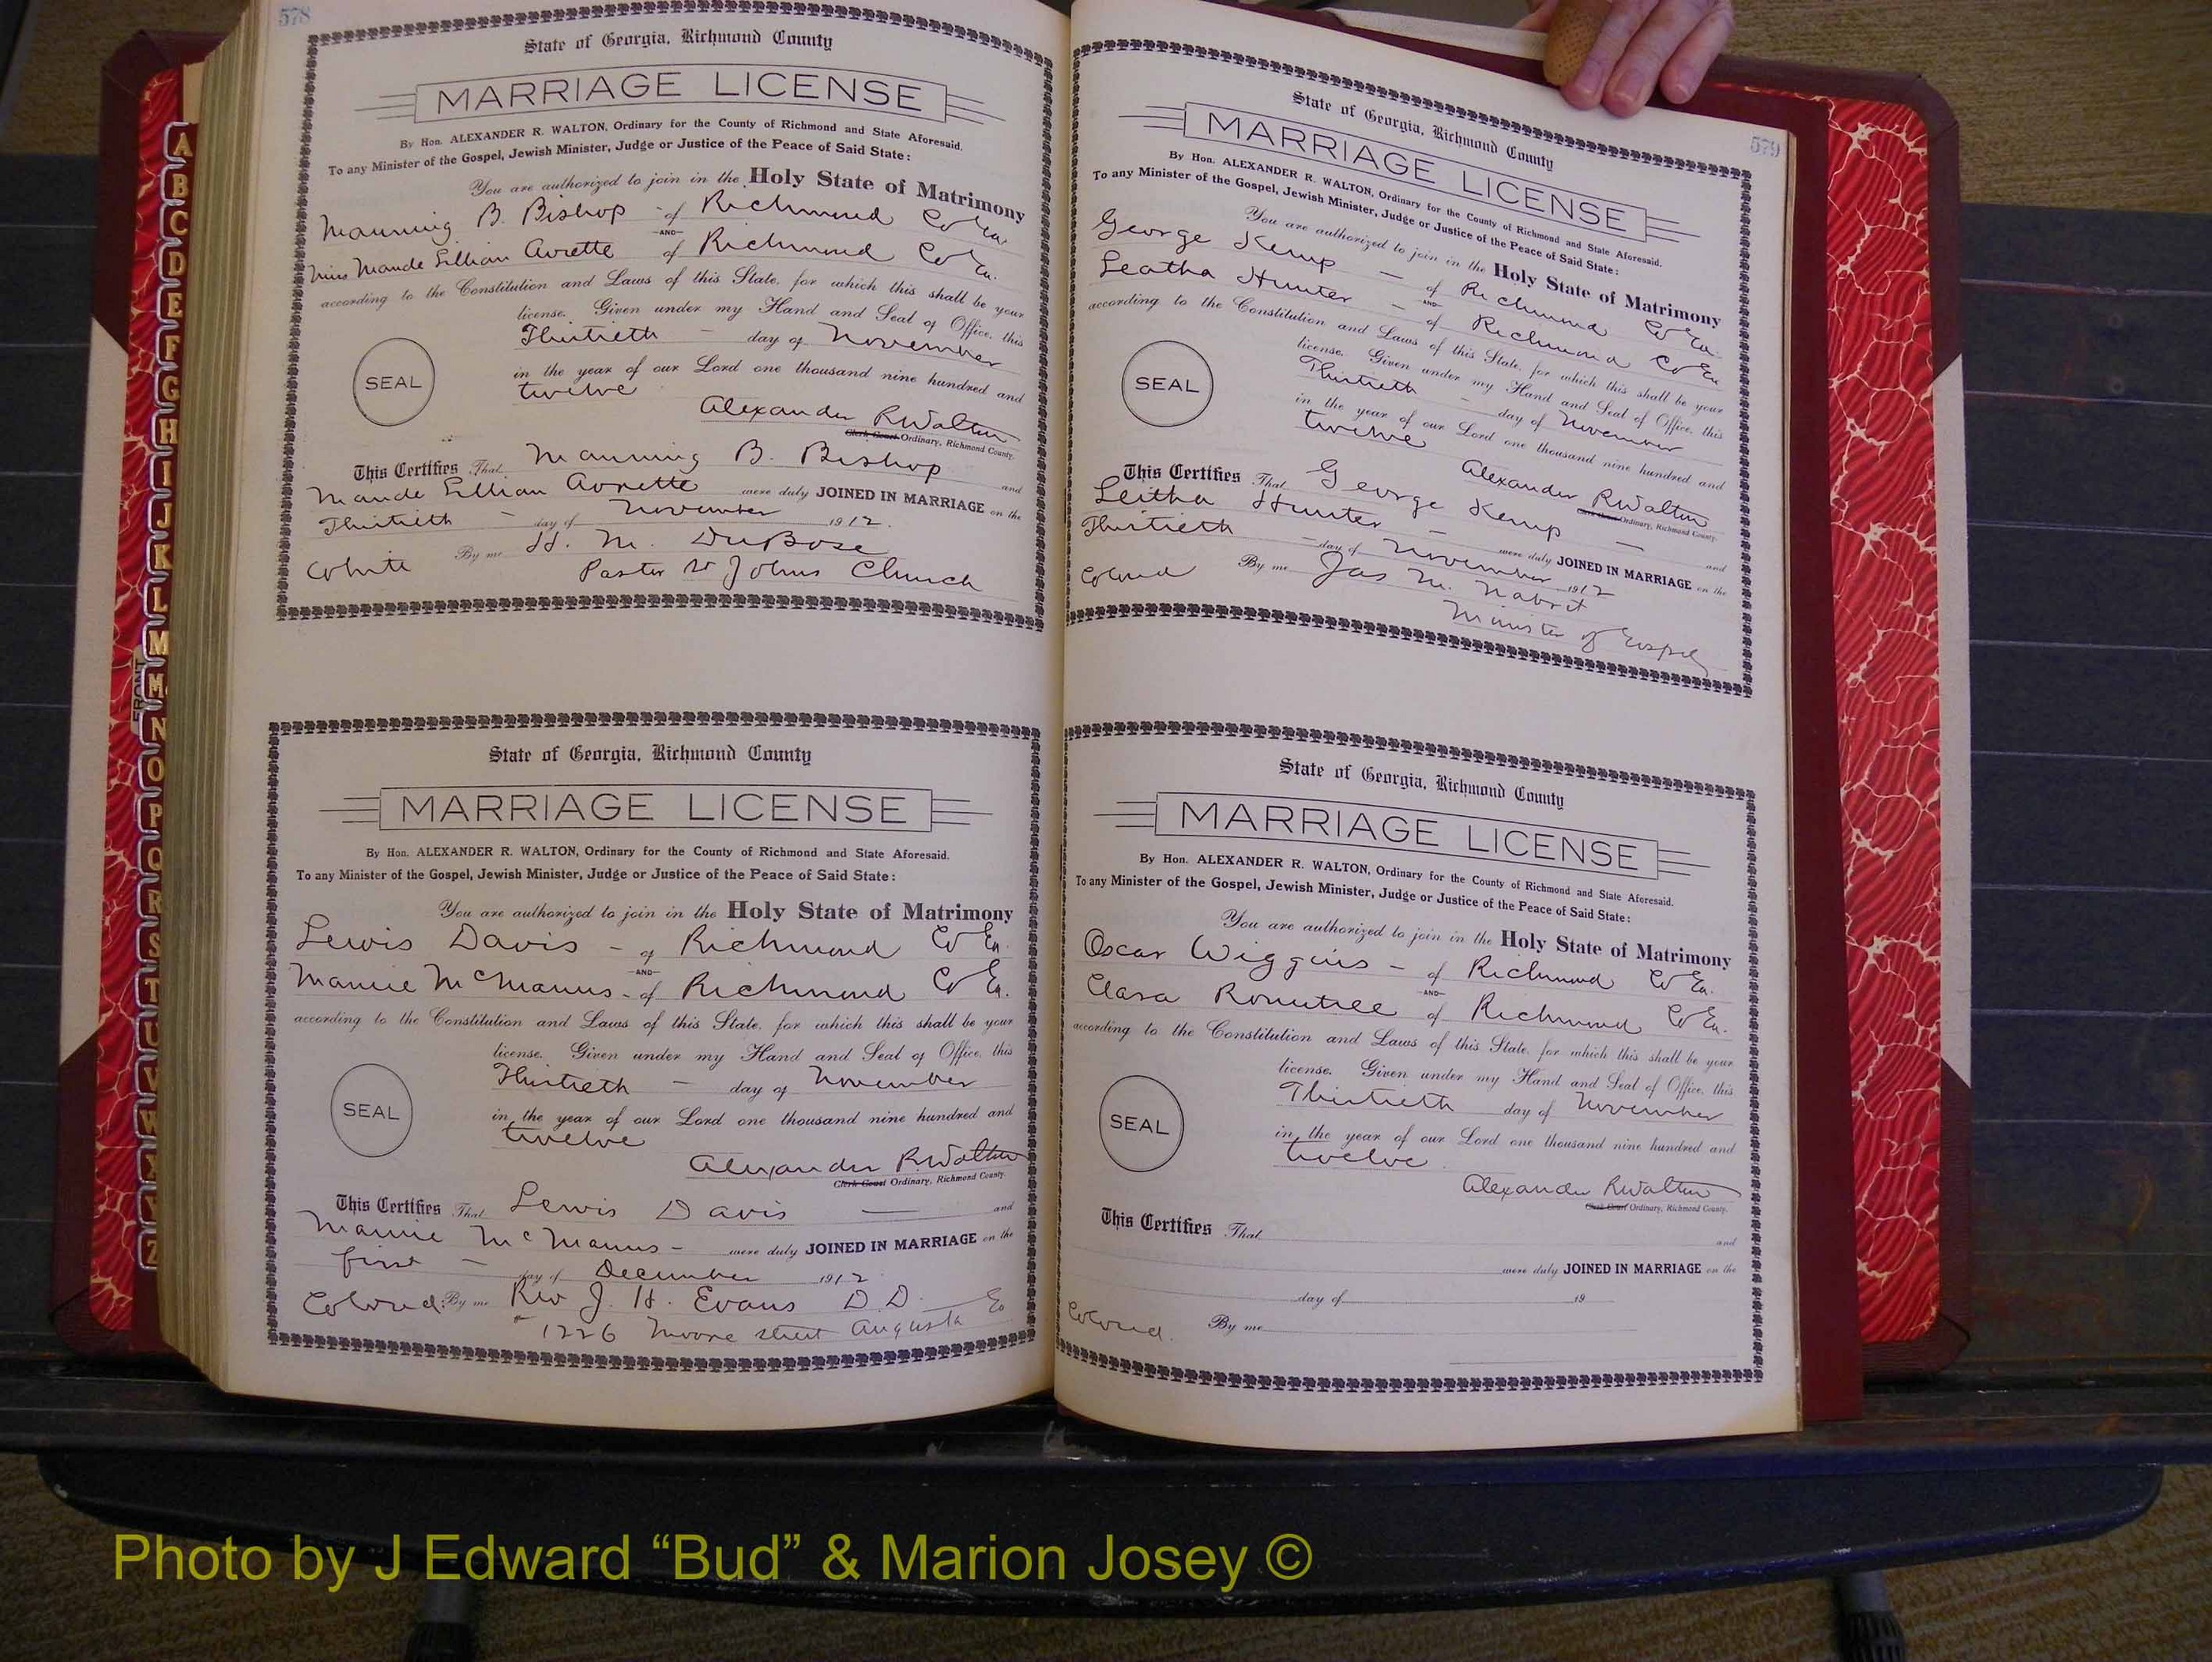 578
State of Georgia, Richmond County
MARRIAGE LICENSE
By Hon. ALEXANDER R. WALTON, Ordinary for the County of Richmond and State Aforesaid.
To any Minister of the Gospel, Jewish Minister, Judge or Justice of the Peace of Said State:
You are authorized to join in the Holy State of Matrimony
Manning B. Bishop of Richmond Co Ga.
AND
Miss Maude Lillian Avrette of Richmond Co Ga.
according to the Constitution and Laws of this State, for which this shall be your
license. Given under my Hand and Seal of Office, this
Thirtieth day of November
SEAL
in the year of our Lord one thousand nine hundred and
twelve
Alexander R Walton
Clerk Court Ordinary, Richmond County.
This Certifies That Manning B. Bishop and
Maude Lillian Avrette were duly JOINED IN MARRIAGE on the
Thirtieth day of November 1912.
White By me H. M. DuBose
Pastor St Johns Church
State of Georgia, Richmond County
MARRIAGE LICENSE
By Hon. ALEXANDER R. WALTON, Ordinary for the County of Richmond and State Aforesaid.
To any Minister of the Gospel, Jewish Minister, Judge or Justice of the Peace of Said State:
You are authorized to join in the Holy State of Matrimony
Lewis Davis - of Richmond Co Ga.
AND
Mamie McManus - of Richmond Co Ga.
according to the Constitution and Laws of this State, for which this shall be your
license. Given under my Hand and Seal of Office, this
Thirtieth - day of November
SEAL
in the year of our Lord one thousand nine hundred and
twelve
Alexander R. Walton
Clerk Court Ordinary, Richmond County.
This Certifies That Lewis Davis and
Mamie McManus - were duly JOINED IN MARRIAGE on the
first - day of December 1912
Colored. By me Rev J. H. Evans D.D.
1226 Moore street Augusta Ga
579
State of Georgia, Richmond County
MARRIAGE LICENSE
By Hon. ALEXANDER R. WALTON, Ordinary for the County of Richmond and State Aforesaid.
To any Minister of the Gospel, Jewish Minister, Judge or Justice of the Peace of Said State:
You are authorized to join in the Holy State of Matrimony
George Kemp - of Richmond Co Ga.
AND
Leatha Hunter - of Richmond Co Ga
according to the Constitution and Laws of this State, for which this shall be your
license. Given under my Hand and Seal of Office, this
Thirtieth - day of November
SEAL
in the year of our Lord one thousand nine hundred and
twelve
Alexander R Walton
Clerk Court Ordinary, Richmond County.
This Certifies That George Kemp - and
Leitha Hunter - were duly JOINED IN MARRIAGE on the
Thirtieth - day of November 1912
Colored By me Jas M. Nabrit
Minister of Gospel
State of Georgia, Richmond County
MARRIAGE LICENSE
By Hon. ALEXANDER R. WALTON, Ordinary for the County of Richmond and State Aforesaid.
To any Minister of the Gospel, Jewish Minister, Judge or Justice of the Peace of Said State:
You are authorized to join in the Holy State of Matrimony
Oscar Wiggins - of Richmond Co Ga.
AND
Clara Rountree of Richmond Co Ga.
according to the Constitution and Laws of this State, for which this shall be your
license. Given under my Hand and Seal of Office, this
Thirtieth day of November
SEAL
in the year of our Lord one thousand nine hundred and
twelve
Alexander R Walton
Clerk Court Ordinary, Richmond County.
This Certifies That and
were duly JOINED IN MARRIAGE on the
day of 19
Colored. By me
A
B
C
D
E
F
G
H
I
J
K
L
M
Mc
N
O
P
Q
R
S
T
U
V
W
X
Y
Z
FRONT
Photo by J Edward “Bud” & Marion Josey ©